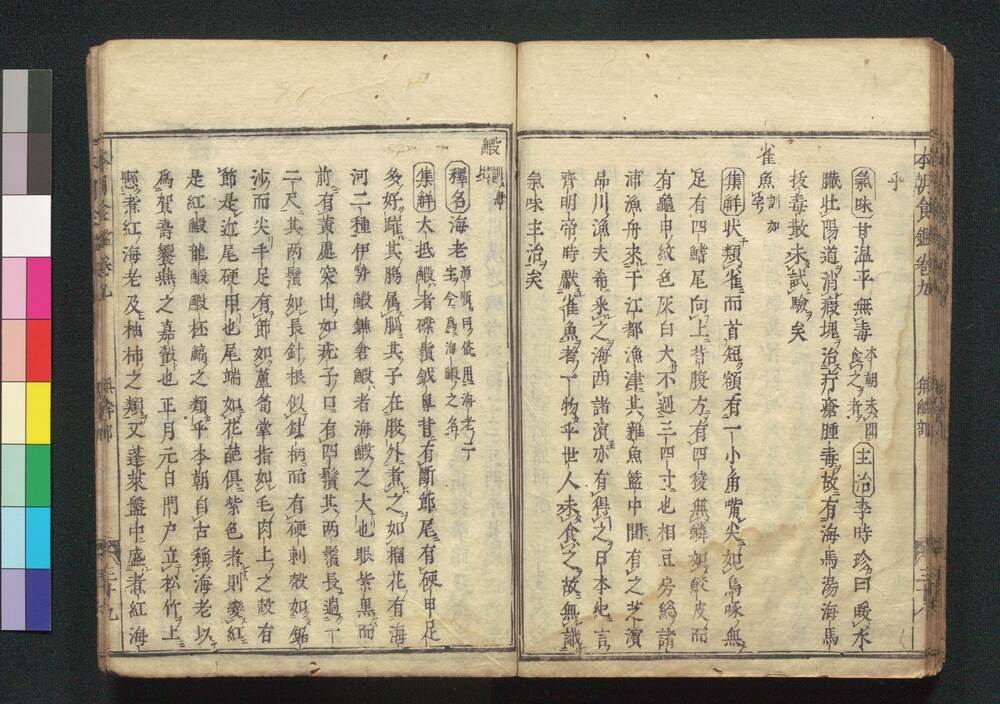 乎
氣味甘温平無毒 本朝未聞食之者 主治李時珍曰暖水
臟壯陽道消瘕塊治疔瘡腫毒故有海馬湯海馬
拔毒散未試驗矣
雀魚 訓如字
集解状類雀而首短額有一小角嘴尖如鳥啄無
足有四鰭尾向上背腹方有四稜無鱗如鮫皮而
有龜甲紋色灰白大不過三四寸也相豆房総諸
浦漁舟來于江都漁津其雜魚籃中間有之芝濱
品川漁夫希采之海西諸濱亦有得之日本紀言
齊明帝時獻雀魚者一物乎世人未食之故無識
氣味主治矣
鰕
釋名海老 源順曰俗用海老二字今爲海鰕之名
集解大抵鰕者磔鬚鉞鼻背有斷節尾有硬甲足
多好躍其腸属腦其子在腹外煮之如榴花有海
河二種伊勢鰕鎌倉鰕者海鰕之大也眼紫黒而
前有黄處突出如疣子口有四鬚其兩鬚長過一
二尺其兩鬚如長針根似針柄而有硬刺殻如鎧
沙而尖手足有節如蘆筍掌指如毛肉上之殻有
節是近尾硬甲也尾端如花葩倶紫色煮則變紅
是紅鰕龍鰕鰕杯鰝之類乎本朝自古稱海老以
爲賀壽饗燕之嘉殽也正月元日門戸立松竹上
懸煮紅海老及柚柿之類又蓬萊盤中盛煮紅海
本朝食鑑卷九
無鱗部
三十八
三十九